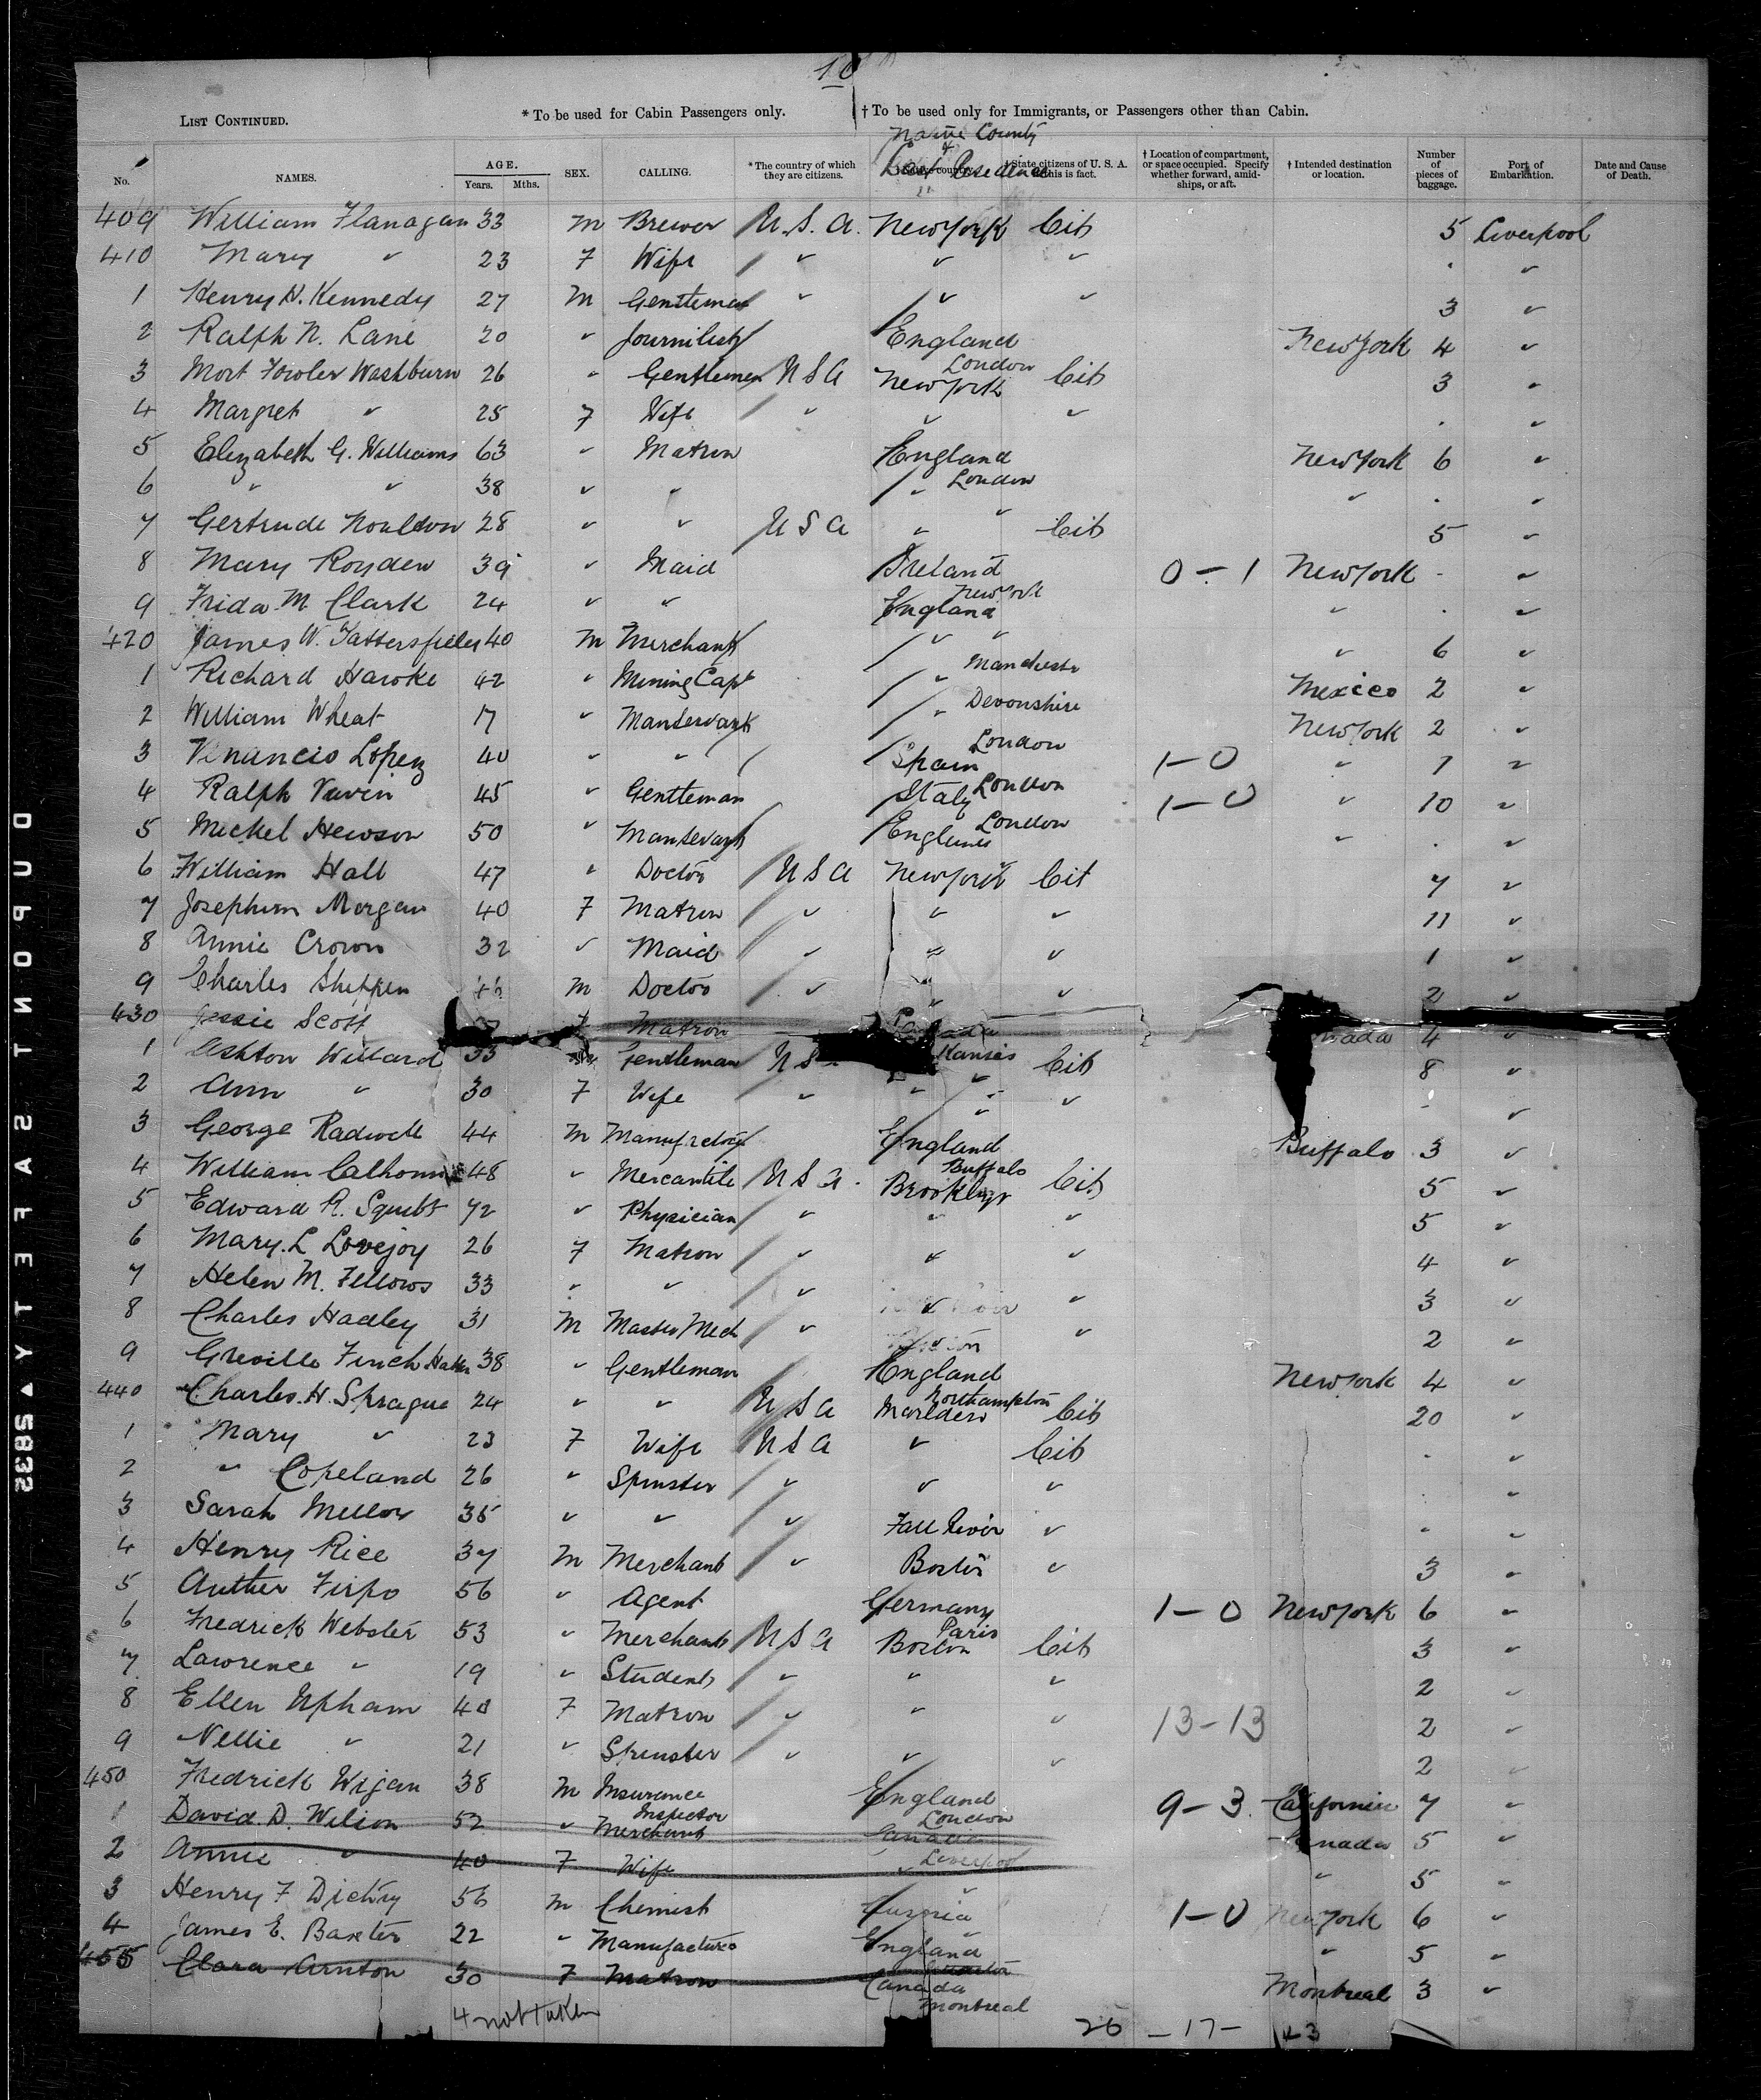 10
LIST CONTINUED.
* To be used for Cabin Passengers only.
† To be used only for Immigrants, or Passengers other than Cabin.
Native County
& Last Residence
No. NAMES. AGE. Years. Mths. SEX. CALLING. * The country of which they are citizens. † State citizens of U. S. A. † Location of compartment, or space occupied. Specify whether forward, amid-ships, or aft. † Intended destination or location. Number of pieces of baggage. Port of Embarkation. Date and Cause of Death.
409 William Flanagan 33 M Brewer U.S.A. New York Cit 5 Liverpool
410 Mary " 23 F Wife " " " . "
1 Henry H. Kennedy 27 M Gentleman " " " 3 "
2 Ralph N. Lane 20 " Journilist England London New York 4 "
3 Mort Fowler Washburn 26 " Gentleman U S A New York Cit 3 "
4 Margret " 25 F Wife " " " . "
5 Elizabeth G. Williams 63 " Matron England London New York 6 "
6 " " 38 " " " " " . "
7 Gertrude Moulton 28 " " U S A " Cit 5 "
8 Mary Royden 39 " Maid Ireland New York 0-1 New York . "
9 Frida M Clark 24 " " England " " . "
420 James W. Tattersfield 40 M Merchant " Manchestr " 6 "
1 Richard Hawke 42 " Mining Capt " Devonshire Mexico 2 "
2 William Wheat 17 " Manservant " London New York 2 "
3 Venancio Lopez 40 " " Spain London 1-0 " 1 "
4 Ralph 45 " Gentleman Italy London 1-0 " 10 "
5 Mickel Hewson 50 " Manservant England " " . "
6 William Hall 47 " Doctor U S A New York Cit 7 "
7 Josephine Morgan 40 F Matron " " " 11 "
8 Annie Crown 32 " Maid " " " 1 "
9 Charles M Doctor " " " 2 "
430 Jessie Scott Matron 4 "
1 Ashton Willard 33 Gentleman U S Kansas Cit 8 "
2 Ann " 30 F Wife " " " . "
3 George Radwell 44 M England Buffalo Buffalo 3 "
4 William Calhoun 48 " Mercantile U S A Brooklyn Cit 5 "
5 Edward R. Squibb 72 " Physician " " " 5 "
6 Mary L Lovejoy 26 F Matron " " " 4 "
7 Helen M. Fellows 33 " " " " " 3 "
8 Charles Hadley 31 M Master Mech " " " 2 "
9 Greville Finch 38 " Gentleman England Northampton New York 4 "
440 Charles H. Sprague 24 " " U S A Marlden Cit 20 "
1 Mary " 23 F Wife U S A " Cit . "
2 " Copeland 26 " Spinster " " " . "
3 Sarah Mellor 35 " " " Fall River " . "
4 Henry Rice 37 M Merchant " Boston " 3 "
5 Auther Firpo 56 " Agent Germany Paris 1-0 New York 6 "
6 Fredrick Webster 53 " Merchant U S A Boston Cit 3 "
7 Lawrence " 19 " Student " " " 2 "
8 Ellen Upham 40 F Matron " " " 13-13 2 "
9 Nellie " 21 " Spinster " " " 2 "
450 Fredrick Wigan 38 M Insurance Inspector England London 9-3 California 7 "
1 David D. Wilson 52 " Merchant Canada Liverpool Canada 5 "
2 Annie " 40 F Wife " " " 5 "
3 Henry F 56 M Chemist " 1-0 New York 6 "
4 James E. Baxter 22 " Manufacturer England " 5 "
455 Clara Arnton 30 F Matron Canada Montreal Montreal 3 "
4 not taken
26 - 17 - 3
DUPONT SAFETY ▲ S835